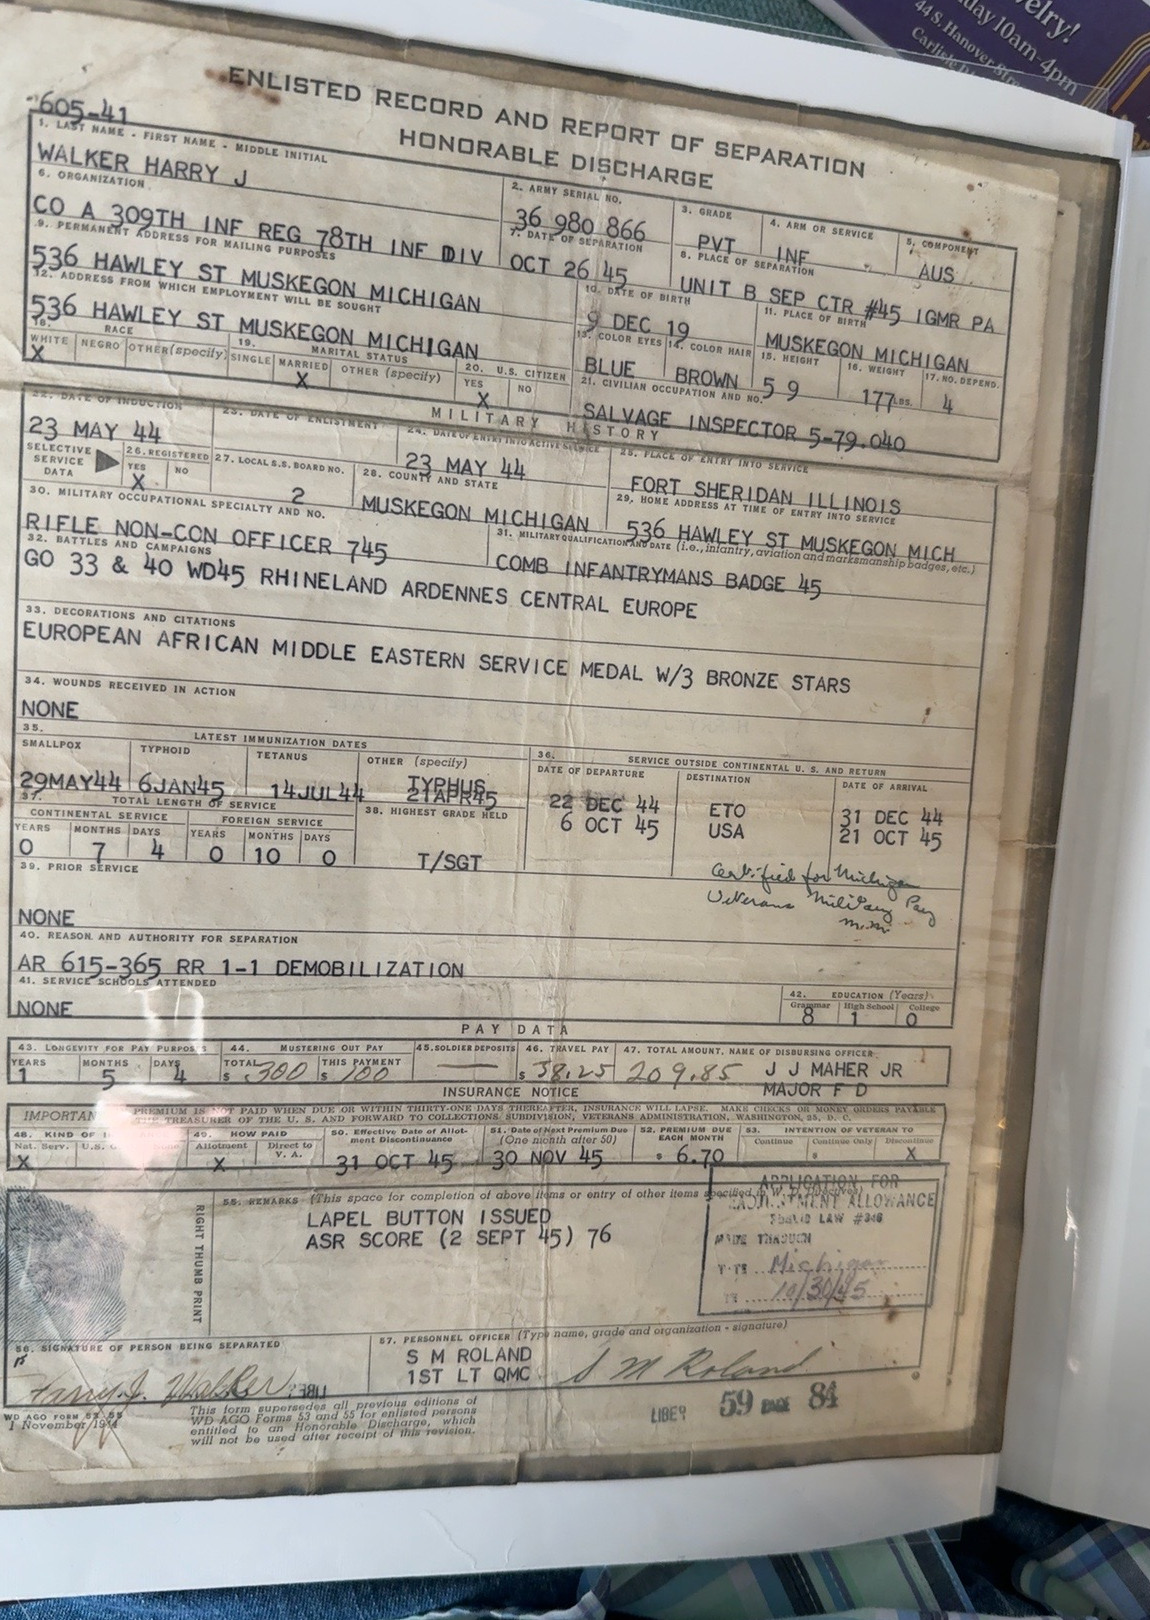 welry!
day 10am-4pm
44 S. Hanover Stre
Carlisle
ENLISTED RECORD AND REPORT OF SEPARATION
HONORABLE DISCHARGE
605-41
1. LAST NAME - FIRST NAME - MIDDLE INITIAL
WALKER HARRY J
2. ARMY SERIAL NO.
36 980 866
3. GRADE
PVT
4. ARM OR SERVICE
INF
5. COMPONENT
AUS
6. ORGANIZATION
CO A 309TH INF REG 78TH INF DIV
7. DATE OF SEPARATION
OCT 26 45
8. PLACE OF SEPARATION
UNIT B SEP CTR #45 IGMR PA
9. PERMANENT ADDRESS FOR MAILING PURPOSES
536 HAWLEY ST MUSKEGON MICHIGAN
10. DATE OF BIRTH
9 DEC 19
11. PLACE OF BIRTH
MUSKEGON MICHIGAN
12. ADDRESS FROM WHICH EMPLOYMENT WILL BE SOUGHT
536 HAWLEY ST MUSKEGON MICHIGAN
13. COLOR EYES
BLUE
14. COLOR HAIR
BROWN
15. HEIGHT
5 9
16. WEIGHT
177 LBS.
17. NO. DEPEND.
4
18. RACE
WHITE NEGRO OTHER (specify)
X
19. MARITAL STATUS
SINGLE MARRIED OTHER (specify)
X
20. U.S. CITIZEN
YES NO
X
21. CIVILIAN OCCUPATION AND NO.
SALVAGE INSPECTOR 5-79.040
MILITARY HISTORY
22. DATE OF INDUCTION
23 MAY 44
23. DATE OF ENLISTMENT
24. DATE OF ENTRY INTO ACTIVE SERVICE
23 MAY 44
25. PLACE OF ENTRY INTO SERVICE
FORT SHERIDAN ILLINOIS
SELECTIVE SERVICE DATA
26. REGISTERED
YES NO
X
27. LOCAL S.S. BOARD NO.
2
28. COUNTY AND STATE
MUSKEGON MICHIGAN
29. HOME ADDRESS AT TIME OF ENTRY INTO SERVICE
536 HAWLEY ST MUSKEGON MICH
30. MILITARY OCCUPATIONAL SPECIALTY AND NO.
RIFLE NON-CON OFFICER 745
31. MILITARY QUALIFICATION AND DATE (i.e., infantry, aviation and marksmanship badges, etc.)
COMB INFANTRYMANS BADGE 45
32. BATTLES AND CAMPAIGNS
GO 33 & 40 WD45 RHINELAND ARDENNES CENTRAL EUROPE
33. DECORATIONS AND CITATIONS
EUROPEAN AFRICAN MIDDLE EASTERN SERVICE MEDAL W/3 BRONZE STARS
34. WOUNDS RECEIVED IN ACTION
NONE
35. LATEST IMMUNIZATION DATES
SMALLPOX TYPHOID TETANUS OTHER (specify)
29MAY44 6JAN45 14JUL44 TYPHUS 21APR45
36. SERVICE OUTSIDE CONTINENTAL U. S. AND RETURN
DATE OF DEPARTURE DESTINATION DATE OF ARRIVAL
22 DEC 44 ETO 31 DEC 44
6 OCT 45 USA 21 OCT 45
37. TOTAL LENGTH OF SERVICE
CONTINENTAL SERVICE FOREIGN SERVICE
YEARS MONTHS DAYS YEARS MONTHS DAYS
0 7 4 0 10 0
38. HIGHEST GRADE HELD
T/SGT
39. PRIOR SERVICE
NONE
Certified for Michigan
Veterans Military Pay
40. REASON AND AUTHORITY FOR SEPARATION
AR 615-365 RR 1-1 DEMOBILIZATION
41. SERVICE SCHOOLS ATTENDED
NONE
42. EDUCATION (Years)
Grammar High School College
8 1 0
PAY DATA
43. LONGEVITY FOR PAY PURPOSES
YEARS MONTHS DAYS
1 5 4
44. MUSTERING OUT PAY
TOTAL THIS PAYMENT
$ 300 $ 100
45. SOLDIER DEPOSITS
46. TRAVEL PAY
$ 38.25
47. TOTAL AMOUNT, NAME OF DISBURSING OFFICER
209.85 J J MAHER JR
MAJOR F D
INSURANCE NOTICE
PREMIUM IS NOT PAID WHEN DUE OR WITHIN THIRTY-ONE DAYS THEREAFTER, INSURANCE WILL LAPSE. MAKE CHECKS OR MONEY ORDERS PAYABLE
THE TREASURER OF THE U. S. AND FORWARD TO COLLECTIONS SUBDIVISION, VETERANS ADMINISTRATION, WASHINGTON, 25, D. C.
48. KIND OF
Nat. Serv. U.S.
X
49. HOW PAID
Allotment Direct to V. A.
X
50. Effective Date of Allotment Discontinuance
31 OCT 45
51. Date of Next Premium Due (One month after 50)
30 NOV 45
52. PREMIUM DUE EACH MONTH
$ 6.70
53. INTENTION OF VETERAN TO
Continue Continue Only Discontinue
$ X
RIGHT THUMB PRINT
55. REMARKS (This space for completion of above items or entry of other items specified in W. D. Directives)
LAPEL BUTTON ISSUED
ASR SCORE (2 SEPT 45) 76
APPLICATION FOR
READJUSTMENT ALLOWANCE
PUBLIC LAW #346
MADE THROUGH
Michigan
10/30/45
56. SIGNATURE OF PERSON BEING SEPARATED
Harry J. Walker
57. PERSONNEL OFFICER (Type name, grade and organization - signature)
S M ROLAND
1ST LT QMC
S M Roland
WD AGO FORM 53-55
1 November 1944
This form supersedes all previous editions of
WD AGO Forms 53 and 55 for enlisted persons
entitled to an Honorable Discharge, which
will not be used after receipt of this revision.
LIBER 59 PAGE 84